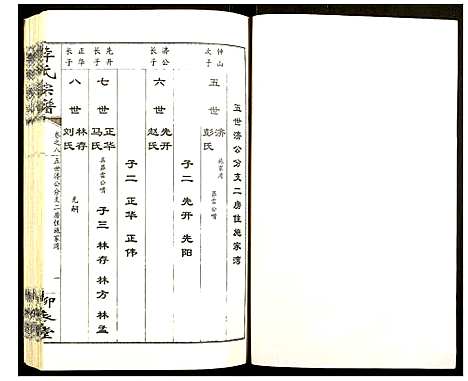 五世济公分支二房住施家湾
钟山次子
五世 济 彭氏
施家湾
吕雷公嘴
子二 先开 先阳
济公长子
六世 先开 赵氏
子二 正华 正伟
先开长子
七世 正华 马氏
吕雷公嘴
子三 林存 林方 林孟
正华长子
八世 林存 刘氏
乏嗣
氏宗谱
卷之八 五世济公分支二房住施家湾
一
堂